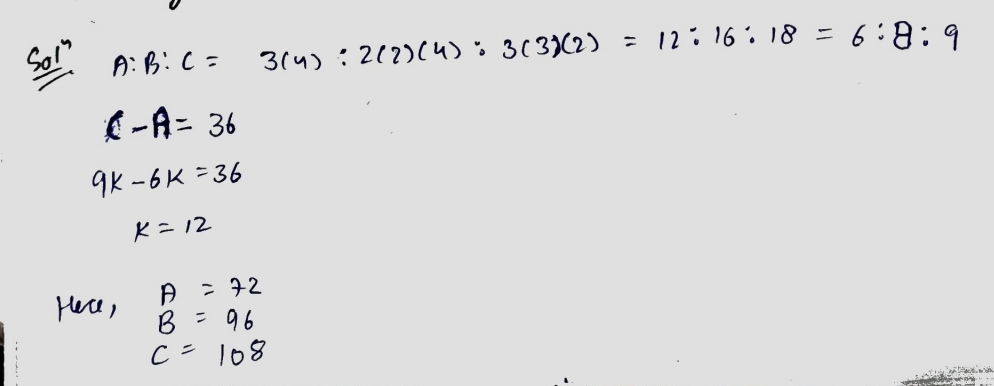 Solⁿ A:B:C = 3(4) : 2(2)(4) : 3(3)(2) = 12 : 16 : 18 = 6 : 8 : 9
C - A = 36
9K - 6K = 36
K = 12
Here, A = 72
B = 96
C = 108